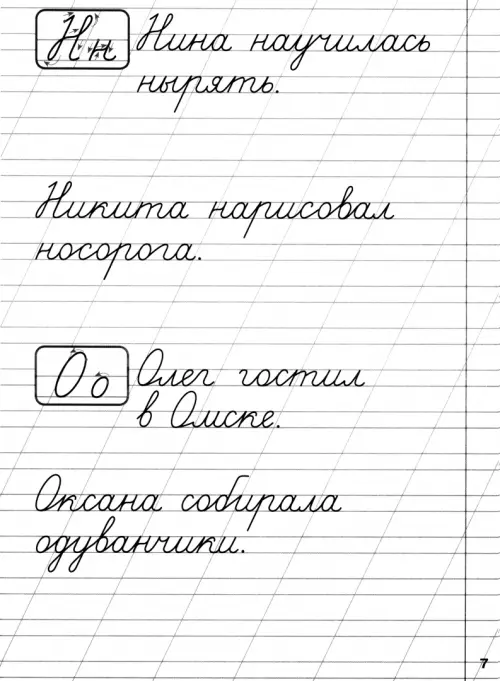 Нн Нина научилась
нырять.
Никита нарисовал
носорога.
Оо Олег гостил
в Омске.
Оксана собирала
одуванчики.
7